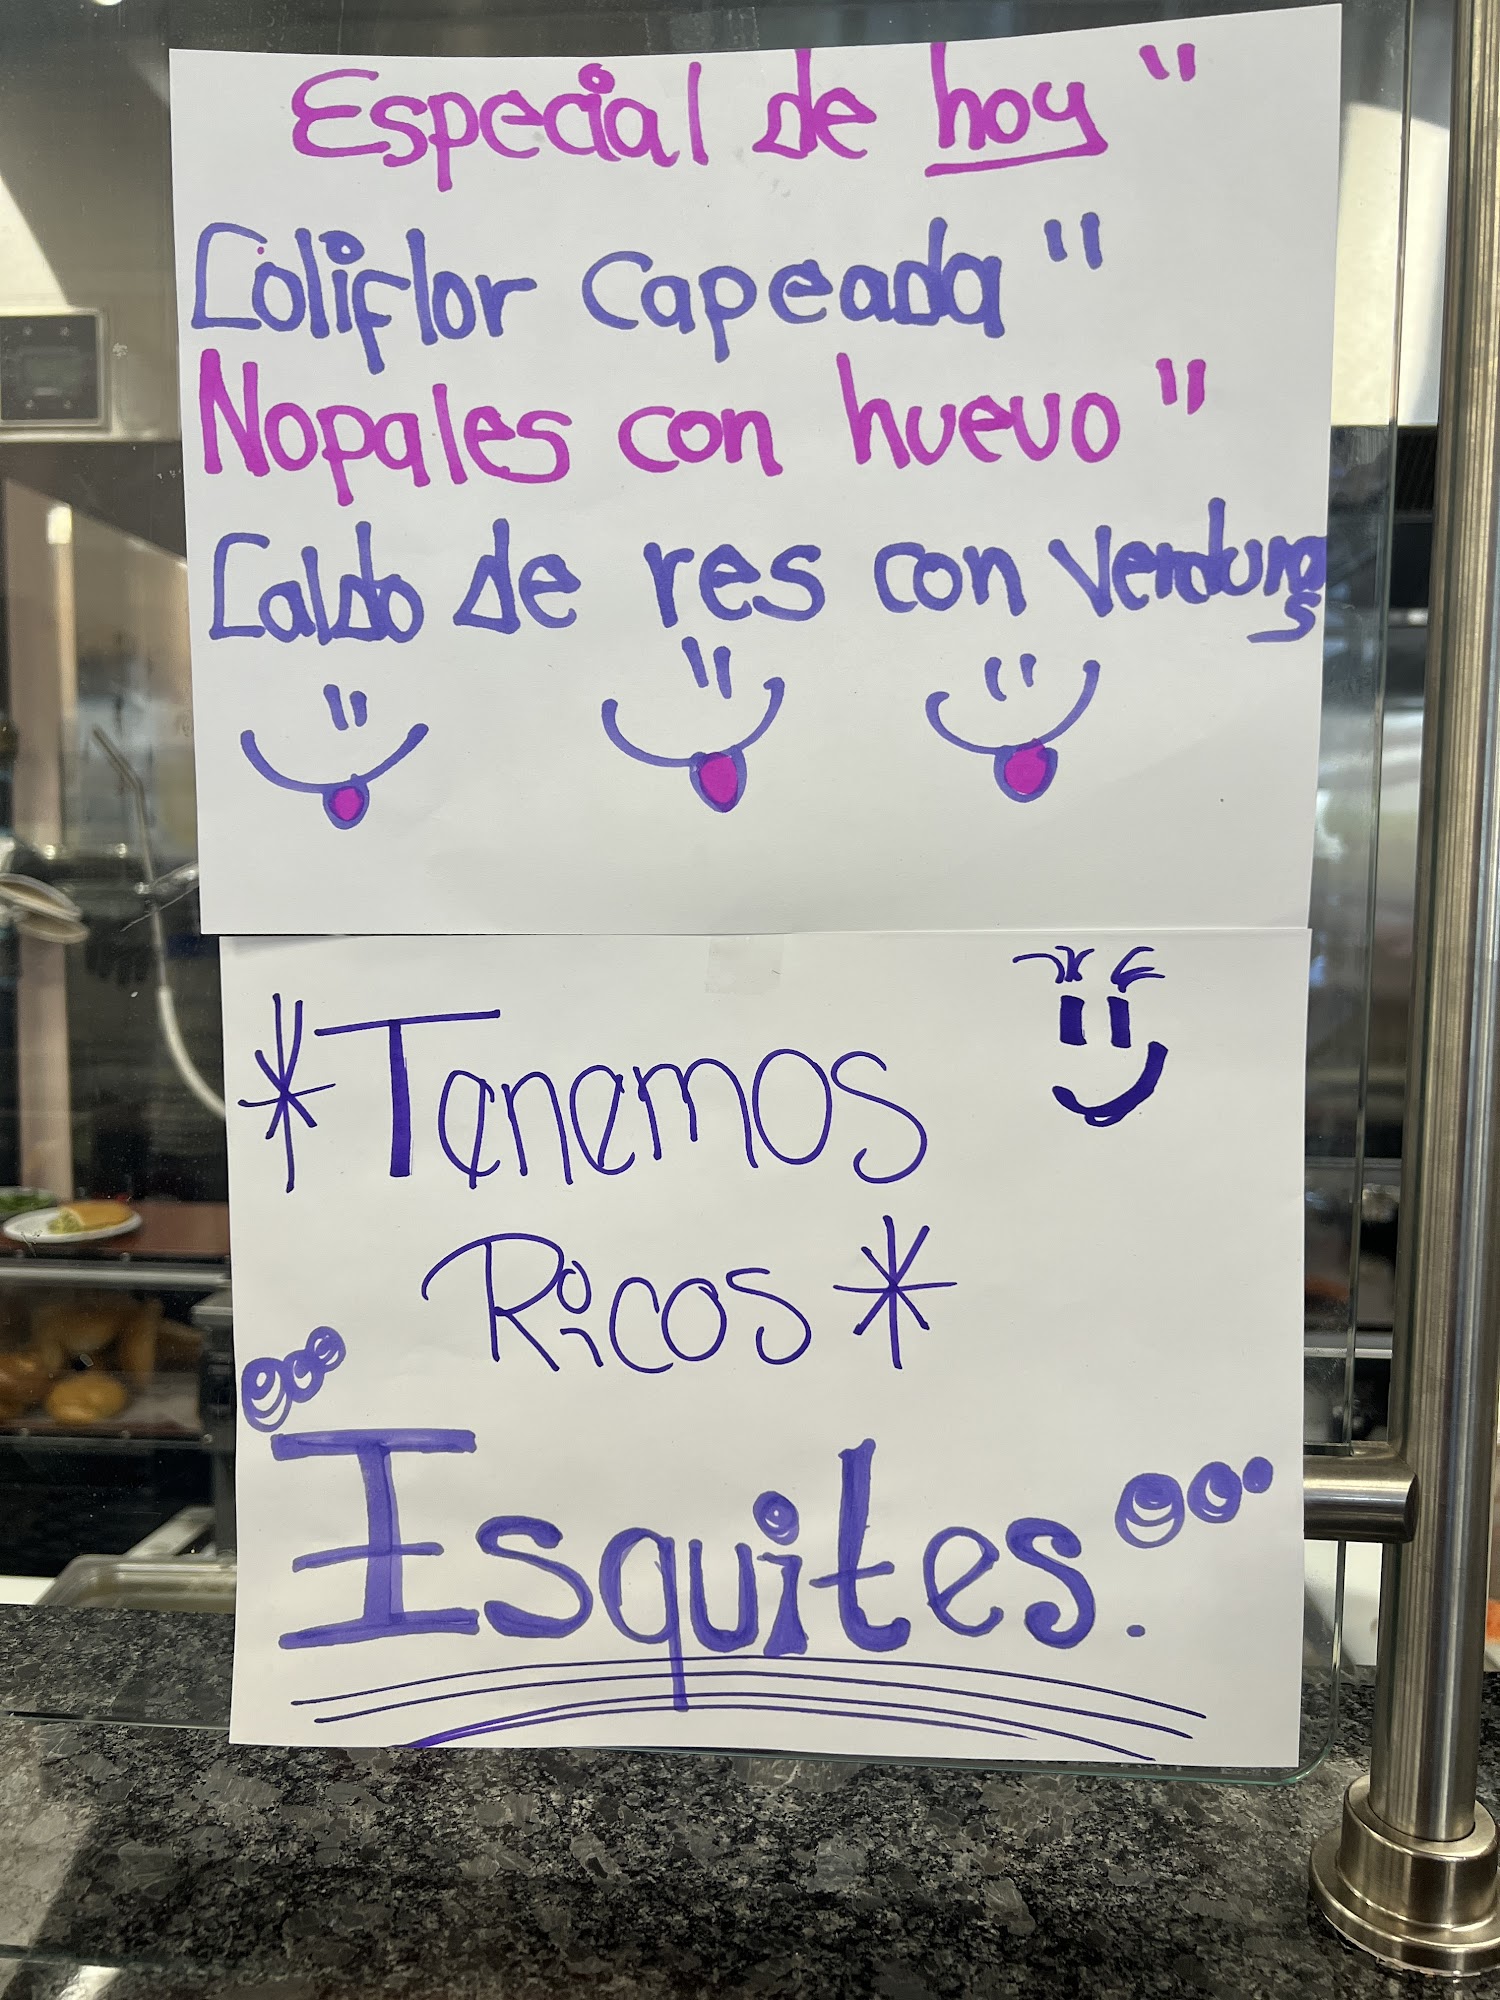 Especial de hoy "
Coliflor Capeada "
Nopales con huevo "
Caldo de res con Verduras
*Tenemos
Ricos *
Isquites.